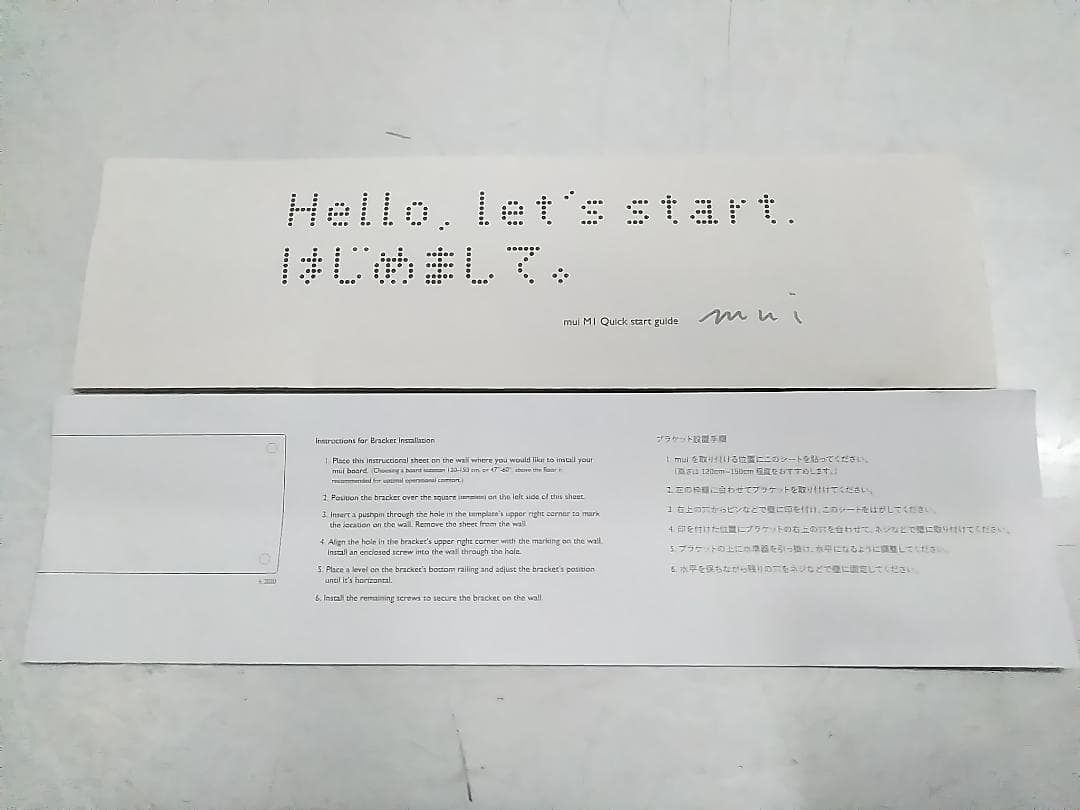 Hello, let's start.
はじめまして。
mui M1 Quick start guide mui
Instructions for Bracket Installation
1. Place this instructional sheet on the wall where you would like to install your
mui board. (Choosing a board location 120-150 cm, or 47"-60", above the floor is
recommended for optimal operational comfort.)
2. Position the bracket over the square on the left side of this sheet.
3. Insert a pushpin through the hole in the template's upper right corner to mark
the location on the wall. Remove the sheet from the wall.
4. Align the hole in the bracket's upper right corner with the marking on the wall.
Install an enclosed screw into the wall through the hole.
5. Place a level on the bracket's bottom railing and adjust the bracket's position
until it's horizontal.
6. Install the remaining screws to secure the bracket on the wall.
ブラケット設置手順
1. mui を取り付ける位置にこのシートを貼ってください。
(高さは 120cm~150cm 程度をおすすめします。)
2. 左の枠線に合わせてブラケットを取り付けてください。
3. 右上の穴からピンなどで壁に印を付け、このシートをはがしてください。
4. 印を付けた位置にブラケットの右上の穴を合わせて、ネジなどで壁に取り付けてください。
5. ブラケットの上に水準器を引っ掛け、水平になるように調整してください。
6. 水平を保ちながら残りの穴をネジなどで壁に固定してください。